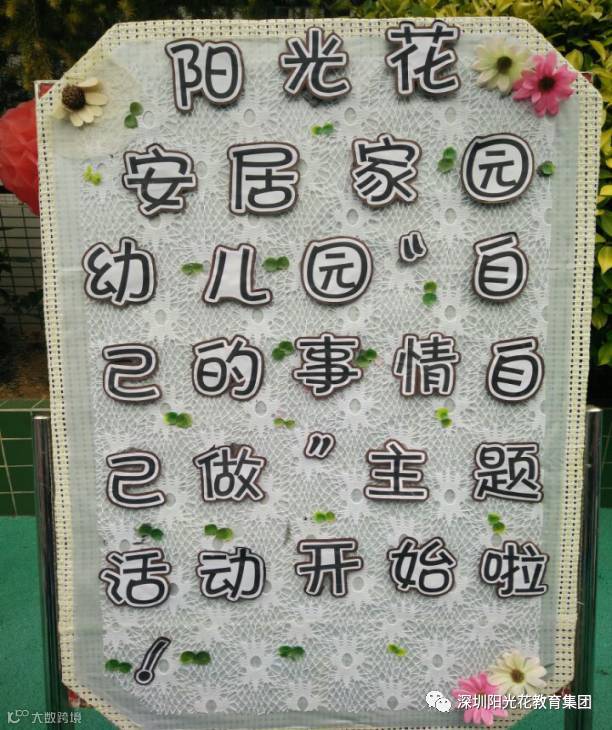 阳光花
安居家园
幼儿园“自
己的事情自
己做”主题
活动开始啦
！
深圳阳光花教育集团
大数跨境